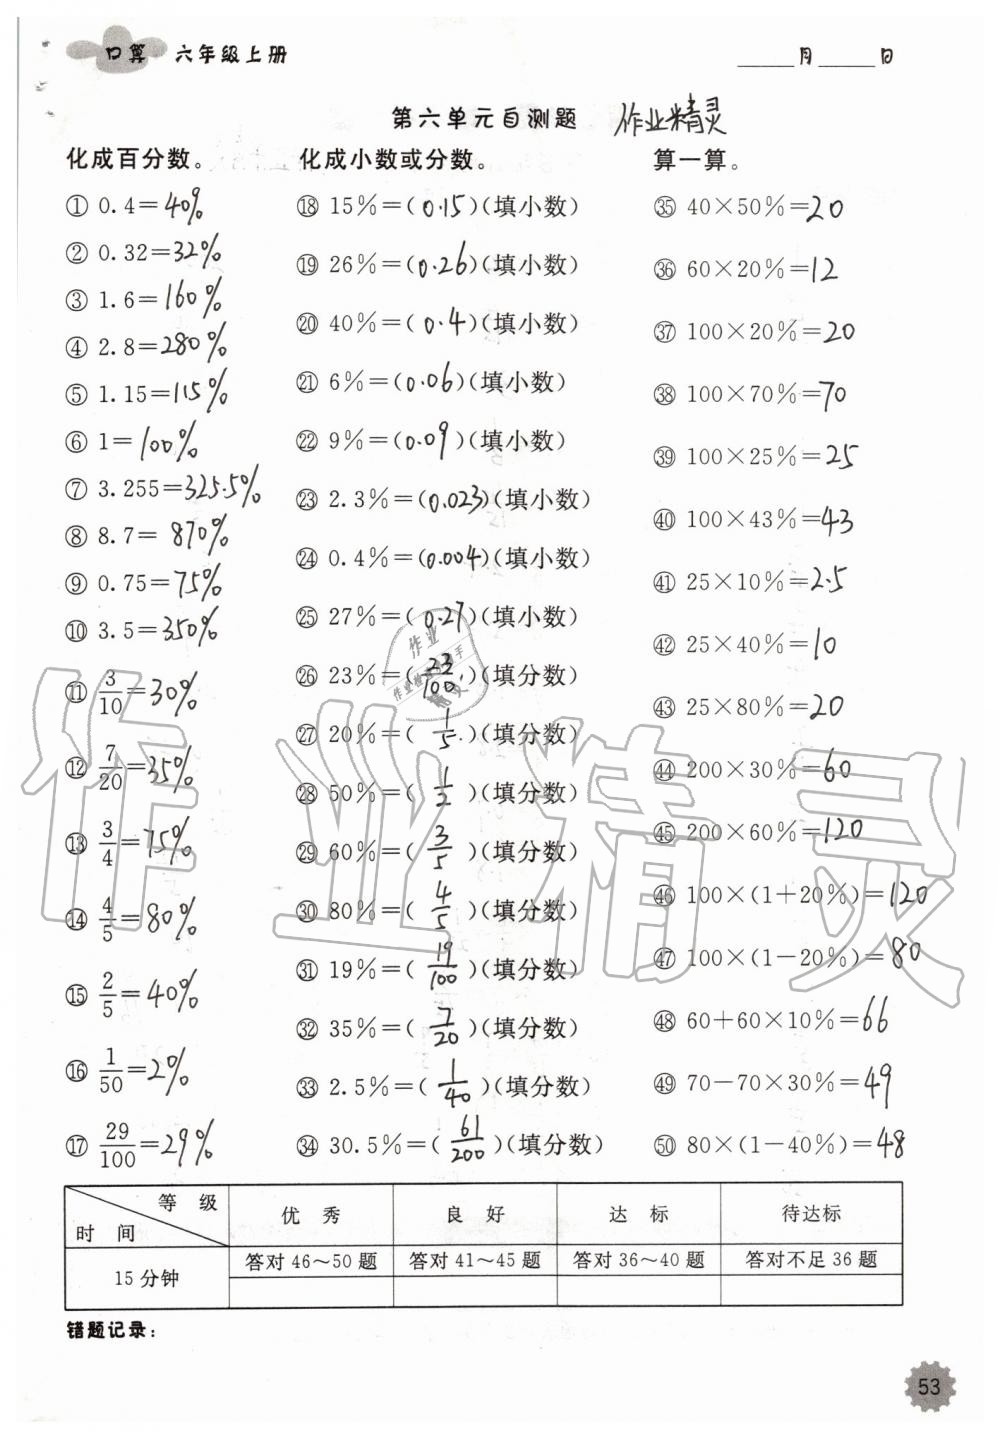 口算 六年级上册
____月____日
第六单元自测题 作业精灵
化成百分数。
① 0.4=40%
② 0.32=32%
③ 1.6=160%
④ 2.8=280%
⑤ 1.15=115%
⑥ 1=100%
⑦ 3.255=325.5%
⑧ 8.7=870%
⑨ 0.75=75%
⑩ 3.5=350%
⑪ 3/10=30%
⑫ 7/20=35%
⑬ 3/4=75%
⑭ 4/5=80%
⑮ 2/5=40%
⑯ 1/50=2%
⑰ 29/100=29%
化成小数或分数。
⑱ 15%=(0.15)(填小数)
⑲ 26%=(0.26)(填小数)
⑳ 40%=(0.4)(填小数)
㉑ 6%=(0.06)(填小数)
㉒ 9%=(0.09)(填小数)
㉓ 2.3%=(0.023)(填小数)
㉔ 0.4%=(0.004)(填小数)
㉕ 27%=(0.27)(填小数)
㉖ 23%=(23/100)(填分数)
㉗ 20%=(1/5)(填分数)
㉘ 50%=(1/2)(填分数)
㉙ 60%=(3/5)(填分数)
㉚ 80%=(4/5)(填分数)
㉛ 19%=(19/100)(填分数)
㉜ 35%=(7/20)(填分数)
㉝ 2.5%=(1/40)(填分数)
㉞ 30.5%=(61/200)(填分数)
算一算。
㉟ 40×50%=20
㊱ 60×20%=12
㊲ 100×20%=20
㊳ 100×70%=70
㊴ 100×25%=25
㊵ 100×43%=43
㊶ 25×10%=2.5
㊷ 25×40%=10
㊸ 25×80%=20
㊹ 200×30%=60
㊺ 200×60%=120
㊻ 100×(1+20%)=120
㊼ 100×(1-20%)=80
㊽ 60+60×10%=66
㊾ 70-70×30%=49
㊿ 80×(1-40%)=48
等级 优秀 良好 达标 待达标
时间
15分钟 答对46~50题 答对41~45题 答对36~40题 答对不足36题
错题记录:
53
作业精灵